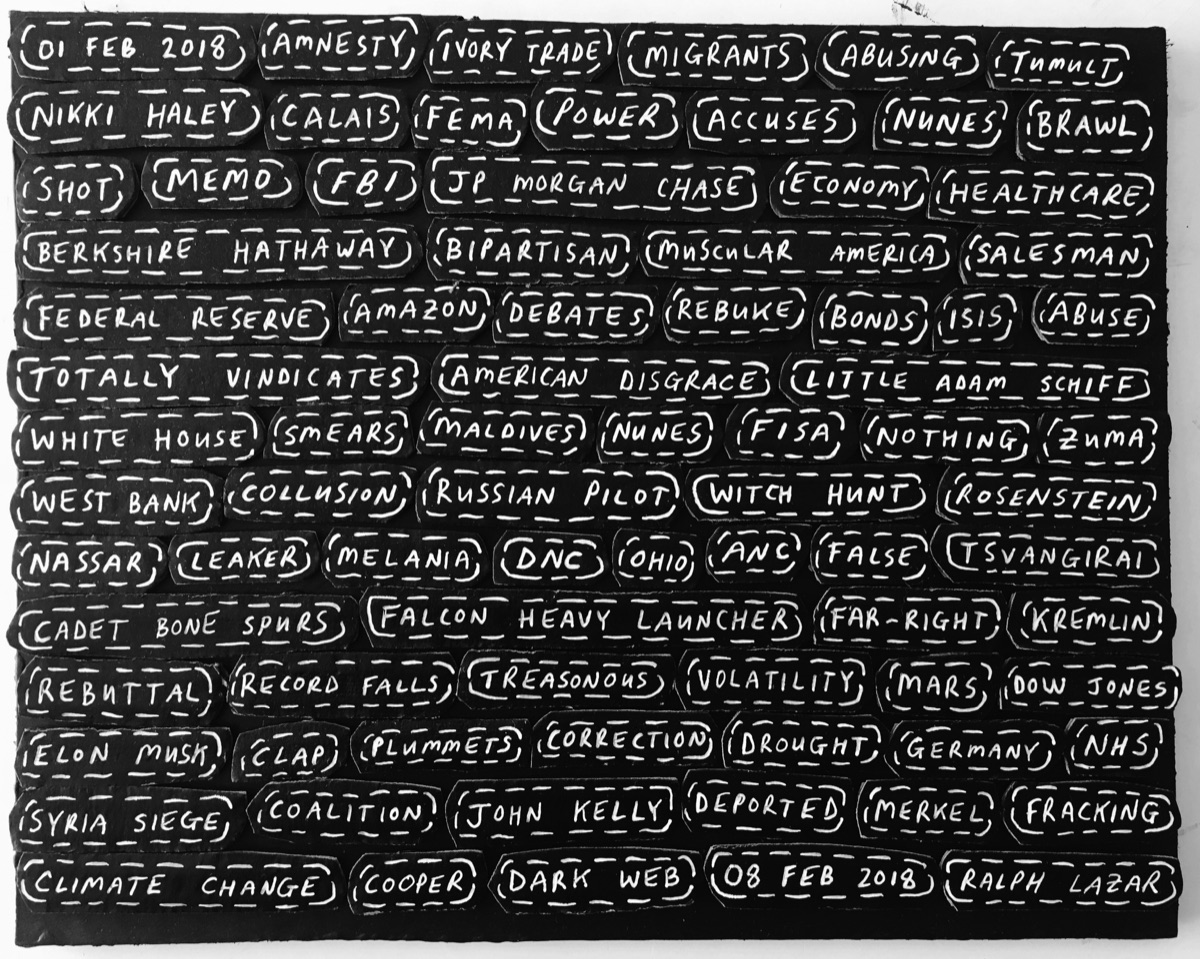 01 FEB 2018 AMNESTY IVORY TRADE MIGRANTS ABUSING TUMULT
NIKKI HALEY CALAIS FEMA POWER ACCUSES NUNES BRAWL
SHOT MEMO FBI JP MORGAN CHASE ECONOMY HEALTHCARE
BERKSHIRE HATHAWAY BIPARTISAN MUSCULAR AMERICA SALESMAN
FEDERAL RESERVE AMAZON DEBATES REBUKE BONDS ISIS ABUSE
TOTALLY VINDICATES AMERICAN DISGRACE LITTLE ADAM SCHIFF
WHITE HOUSE SMEARS MALDIVES NUNES FISA NOTHING ZUMA
WEST BANK COLLUSION RUSSIAN PILOT WITCH HUNT ROSENSTEIN
NASSAR LEAKER MELANIA DNC OHIO ANC FALSE TSVANGIRAI
CADET BONE SPURS FALCON HEAVY LAUNCHER FAR-RIGHT KREMLIN
REBUTTAL RECORD FALLS TREASONOUS VOLATILITY MARS DOW JONES
ELON MUSK CLAP PLUMMETS CORRECTION DROUGHT GERMANY NHS
SYRIA SIEGE COALITION JOHN KELLY DEPORTED MERKEL FRACKING
CLIMATE CHANGE COOPER DARK WEB 08 FEB 2018 RALPH LAZAR